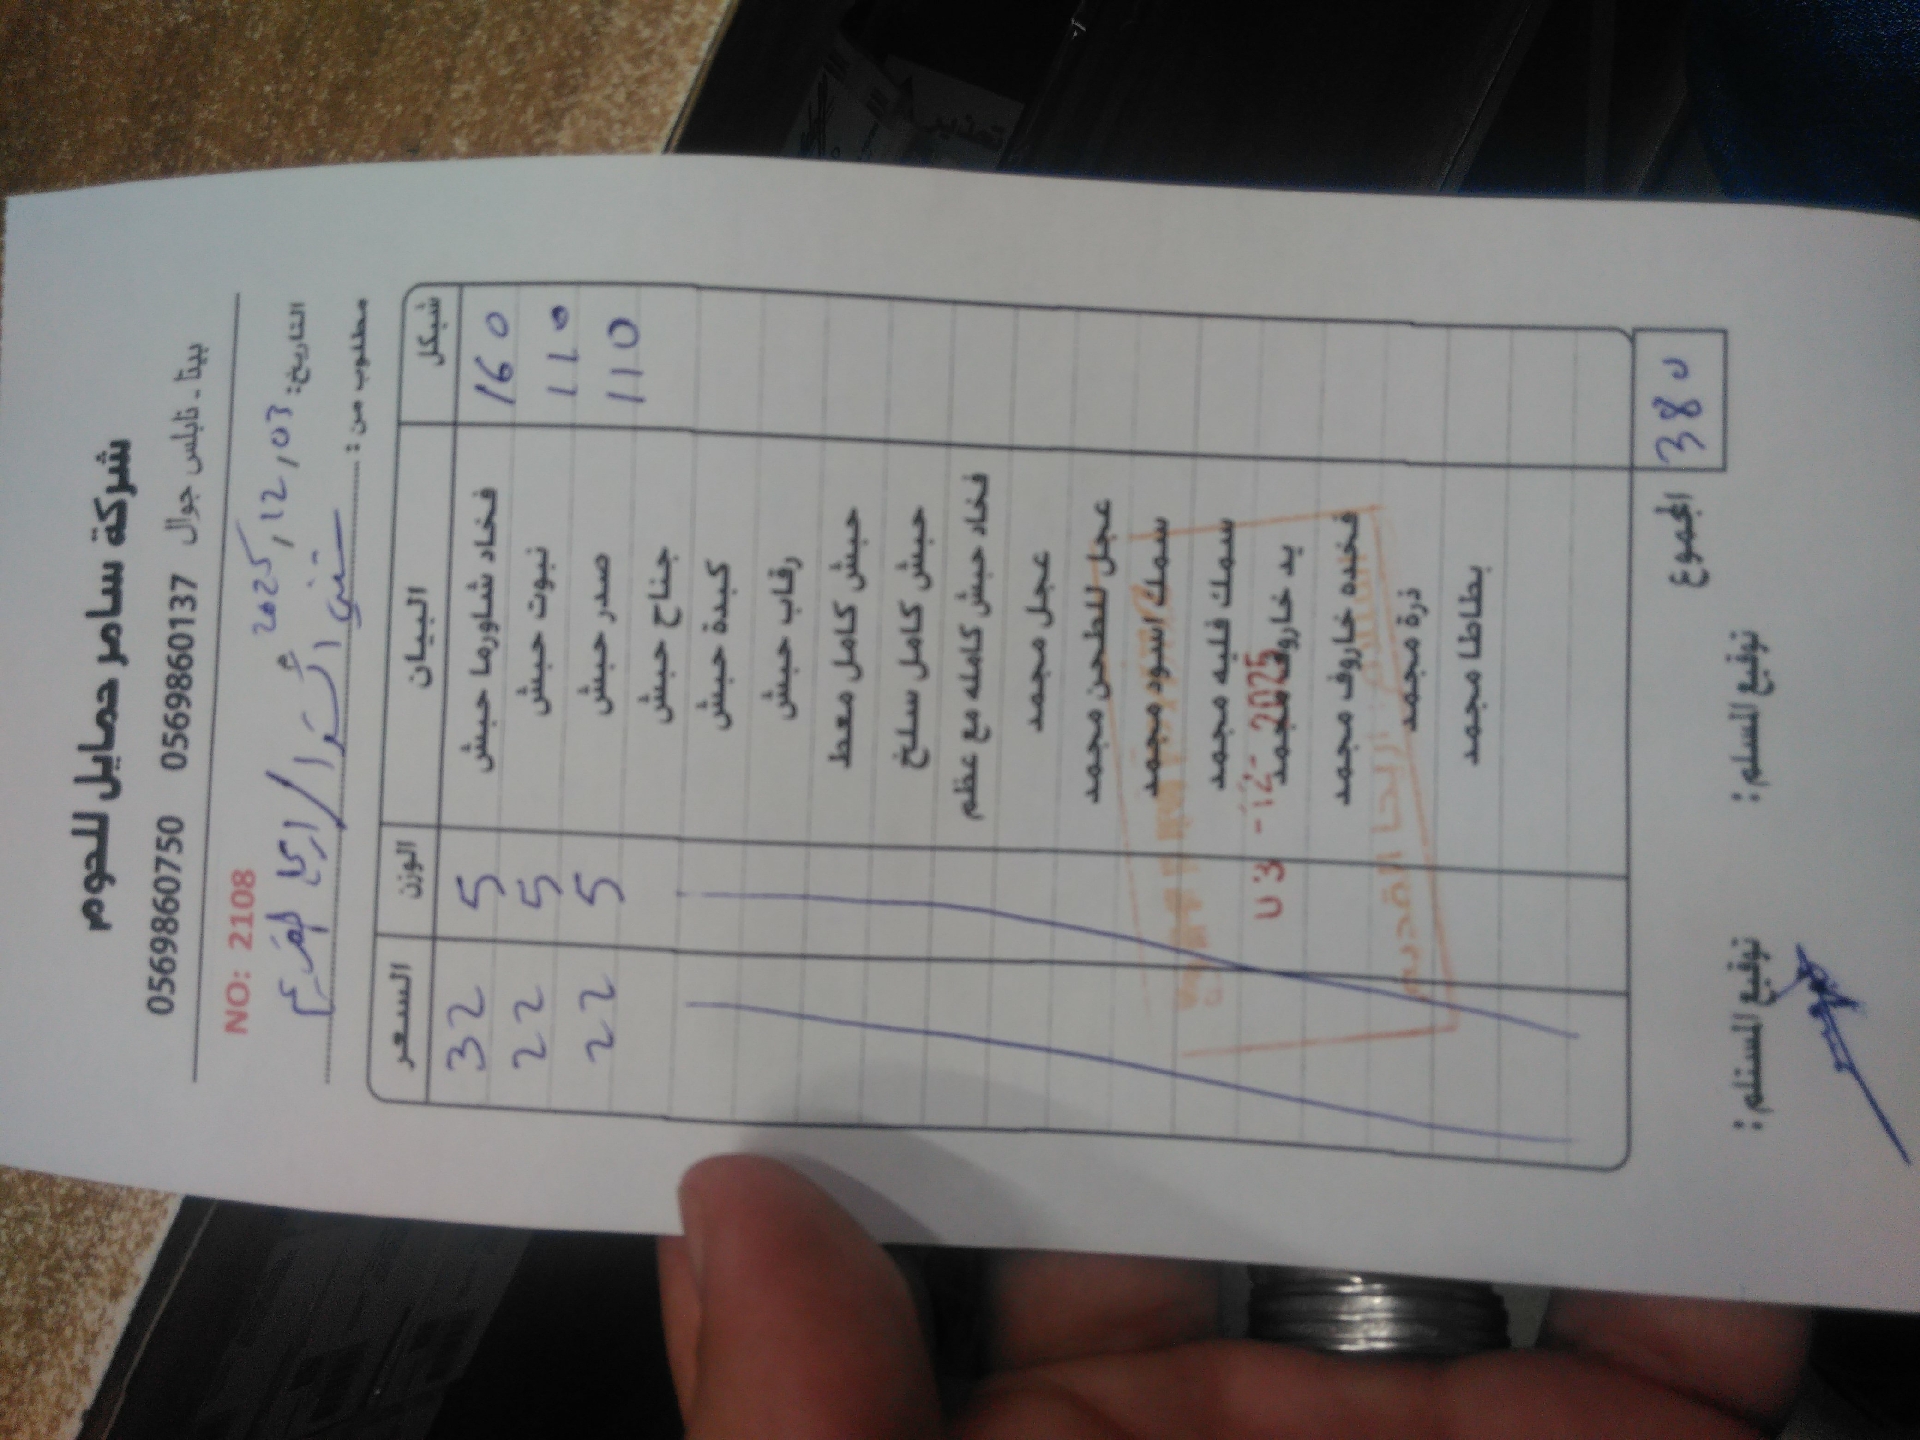 شركة سامر حمايل للحوم
بيتا - نابلس جوال 0569860137 0569860750
التاريخ: 2025,12,03 NO: 2108
مطلوب من :
البيان الوزن السعر شيكل
فخاد شاورما حبش 5 32 160
نبوت حبش 5 22 110
صدر حبش 5 22 110
جناح حبش
كبدة حبش
رقاب حبش
حبش كامل معط
حبش كامل سلخ
فخاد حبش كامله مع عظم
عجل مجمد
عجل للطحن مجمد
سمك اسود مجمد
سمك فليه مجمد
يد خاروف مجمد
03 -12- 2025
فخده خاروف مجمد
ذرة مجمد
اريحا القديم
بطاطا مجمد
المجموع 380
توقيع المسلم : توقيع المستلم :